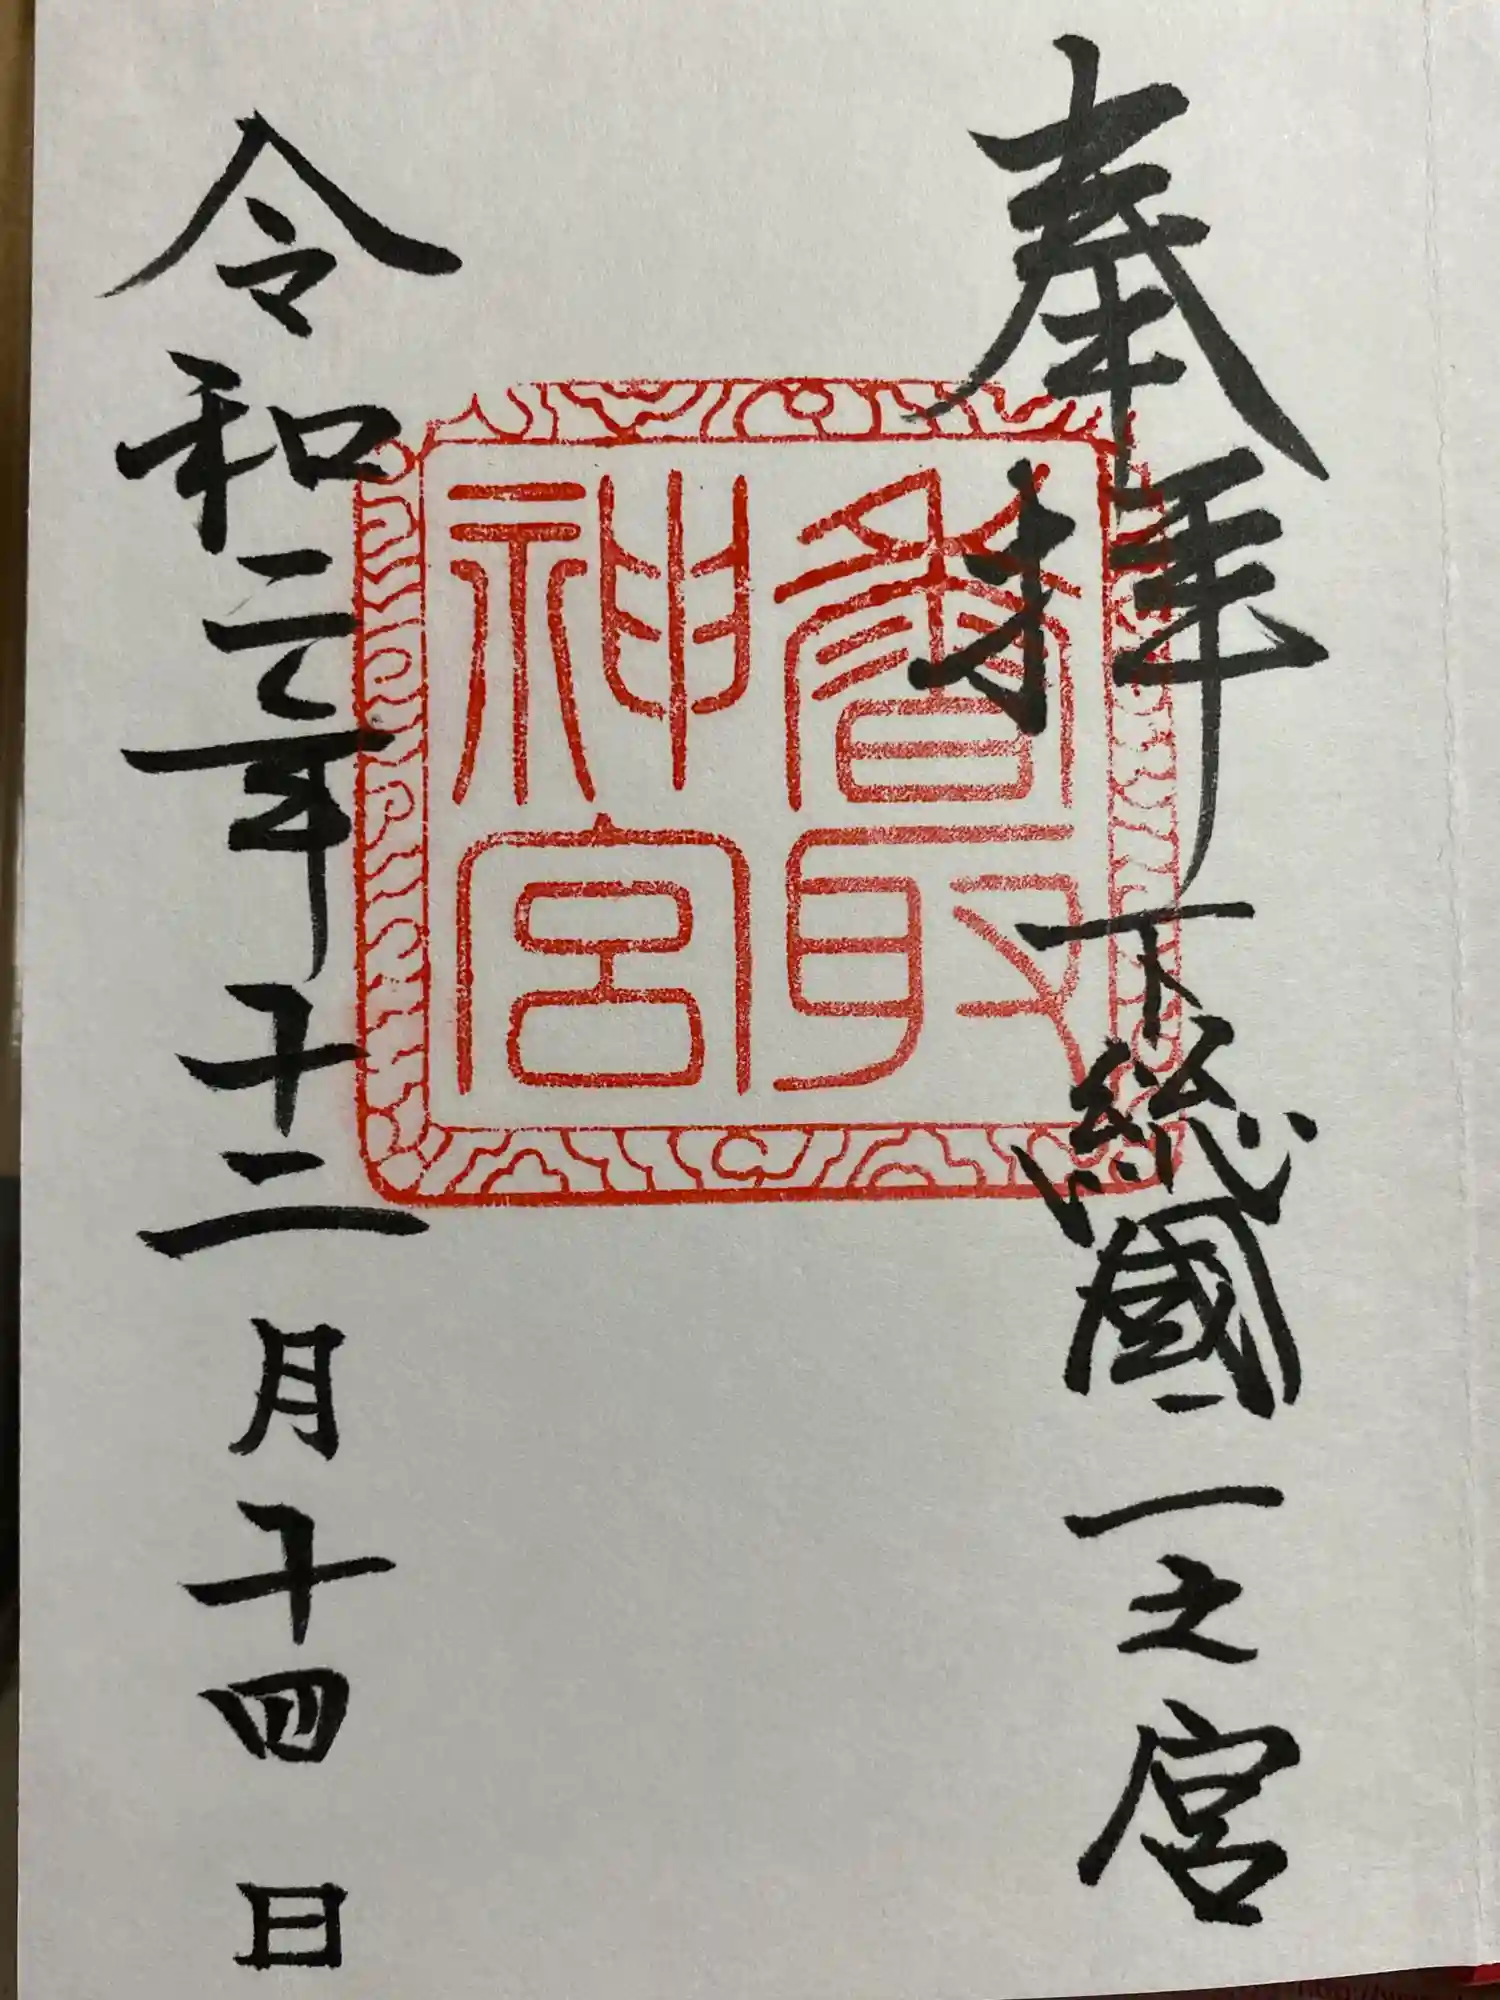 奉拝
下総國一之宮
香取
神宮
令和三年十二月十四日